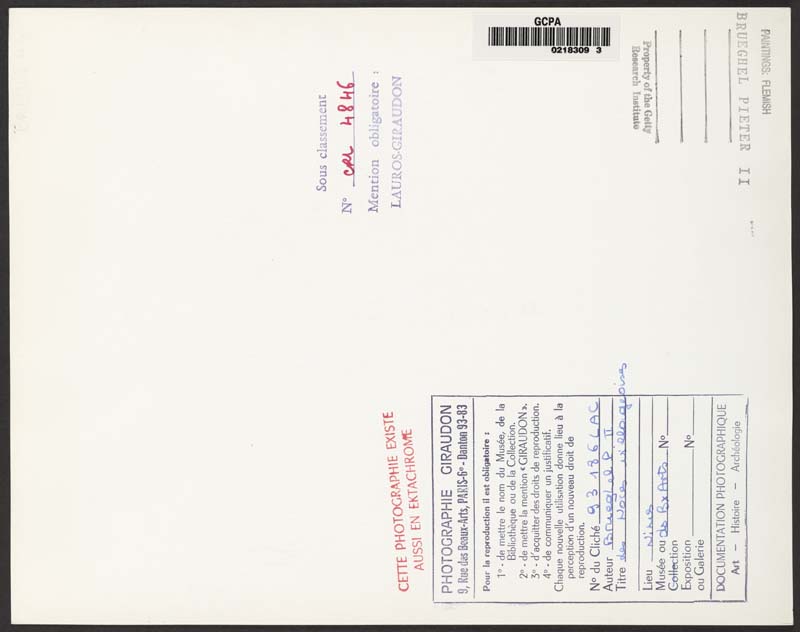 GCPA
0218309 3
PAINTINGS: FLEMISH
BRUEGHEL PIETER II
Property of the Getty
Research Institute
Sous classement
N° CRL 4846
Mention obligatoire :
LAUROS-GIRAUDON
CETTE PHOTOGRAPHIE EXISTE
AUSSI EN EKTACHROME
PHOTOGRAPHIE GIRAUDON
9, Rue des Beaux-Arts, PARIS-6e - Danton 93-83
Pour la reproduction il est obligatoire :
1° - de mettre le nom du Musée, de la
Bibliothèque ou de la Collection.
2° - de mettre la mention « GIRAUDON ».
3° - d'acquitter des droits de reproduction.
4° - de communiquer un justificatif.
Chaque nouvelle utilisation donne lieu à la
perception d'un nouveau droit de
reproduction.
N° du Cliché 93186 LAC
Auteur Brueghel P. II
Titre des Noces villageoises
Lieu Nîmes
Musée ou de Bx Arts N°
Collection
Exposition N°
ou Galerie
DOCUMENTATION PHOTOGRAPHIQUE
Art – Histoire – Archéologie